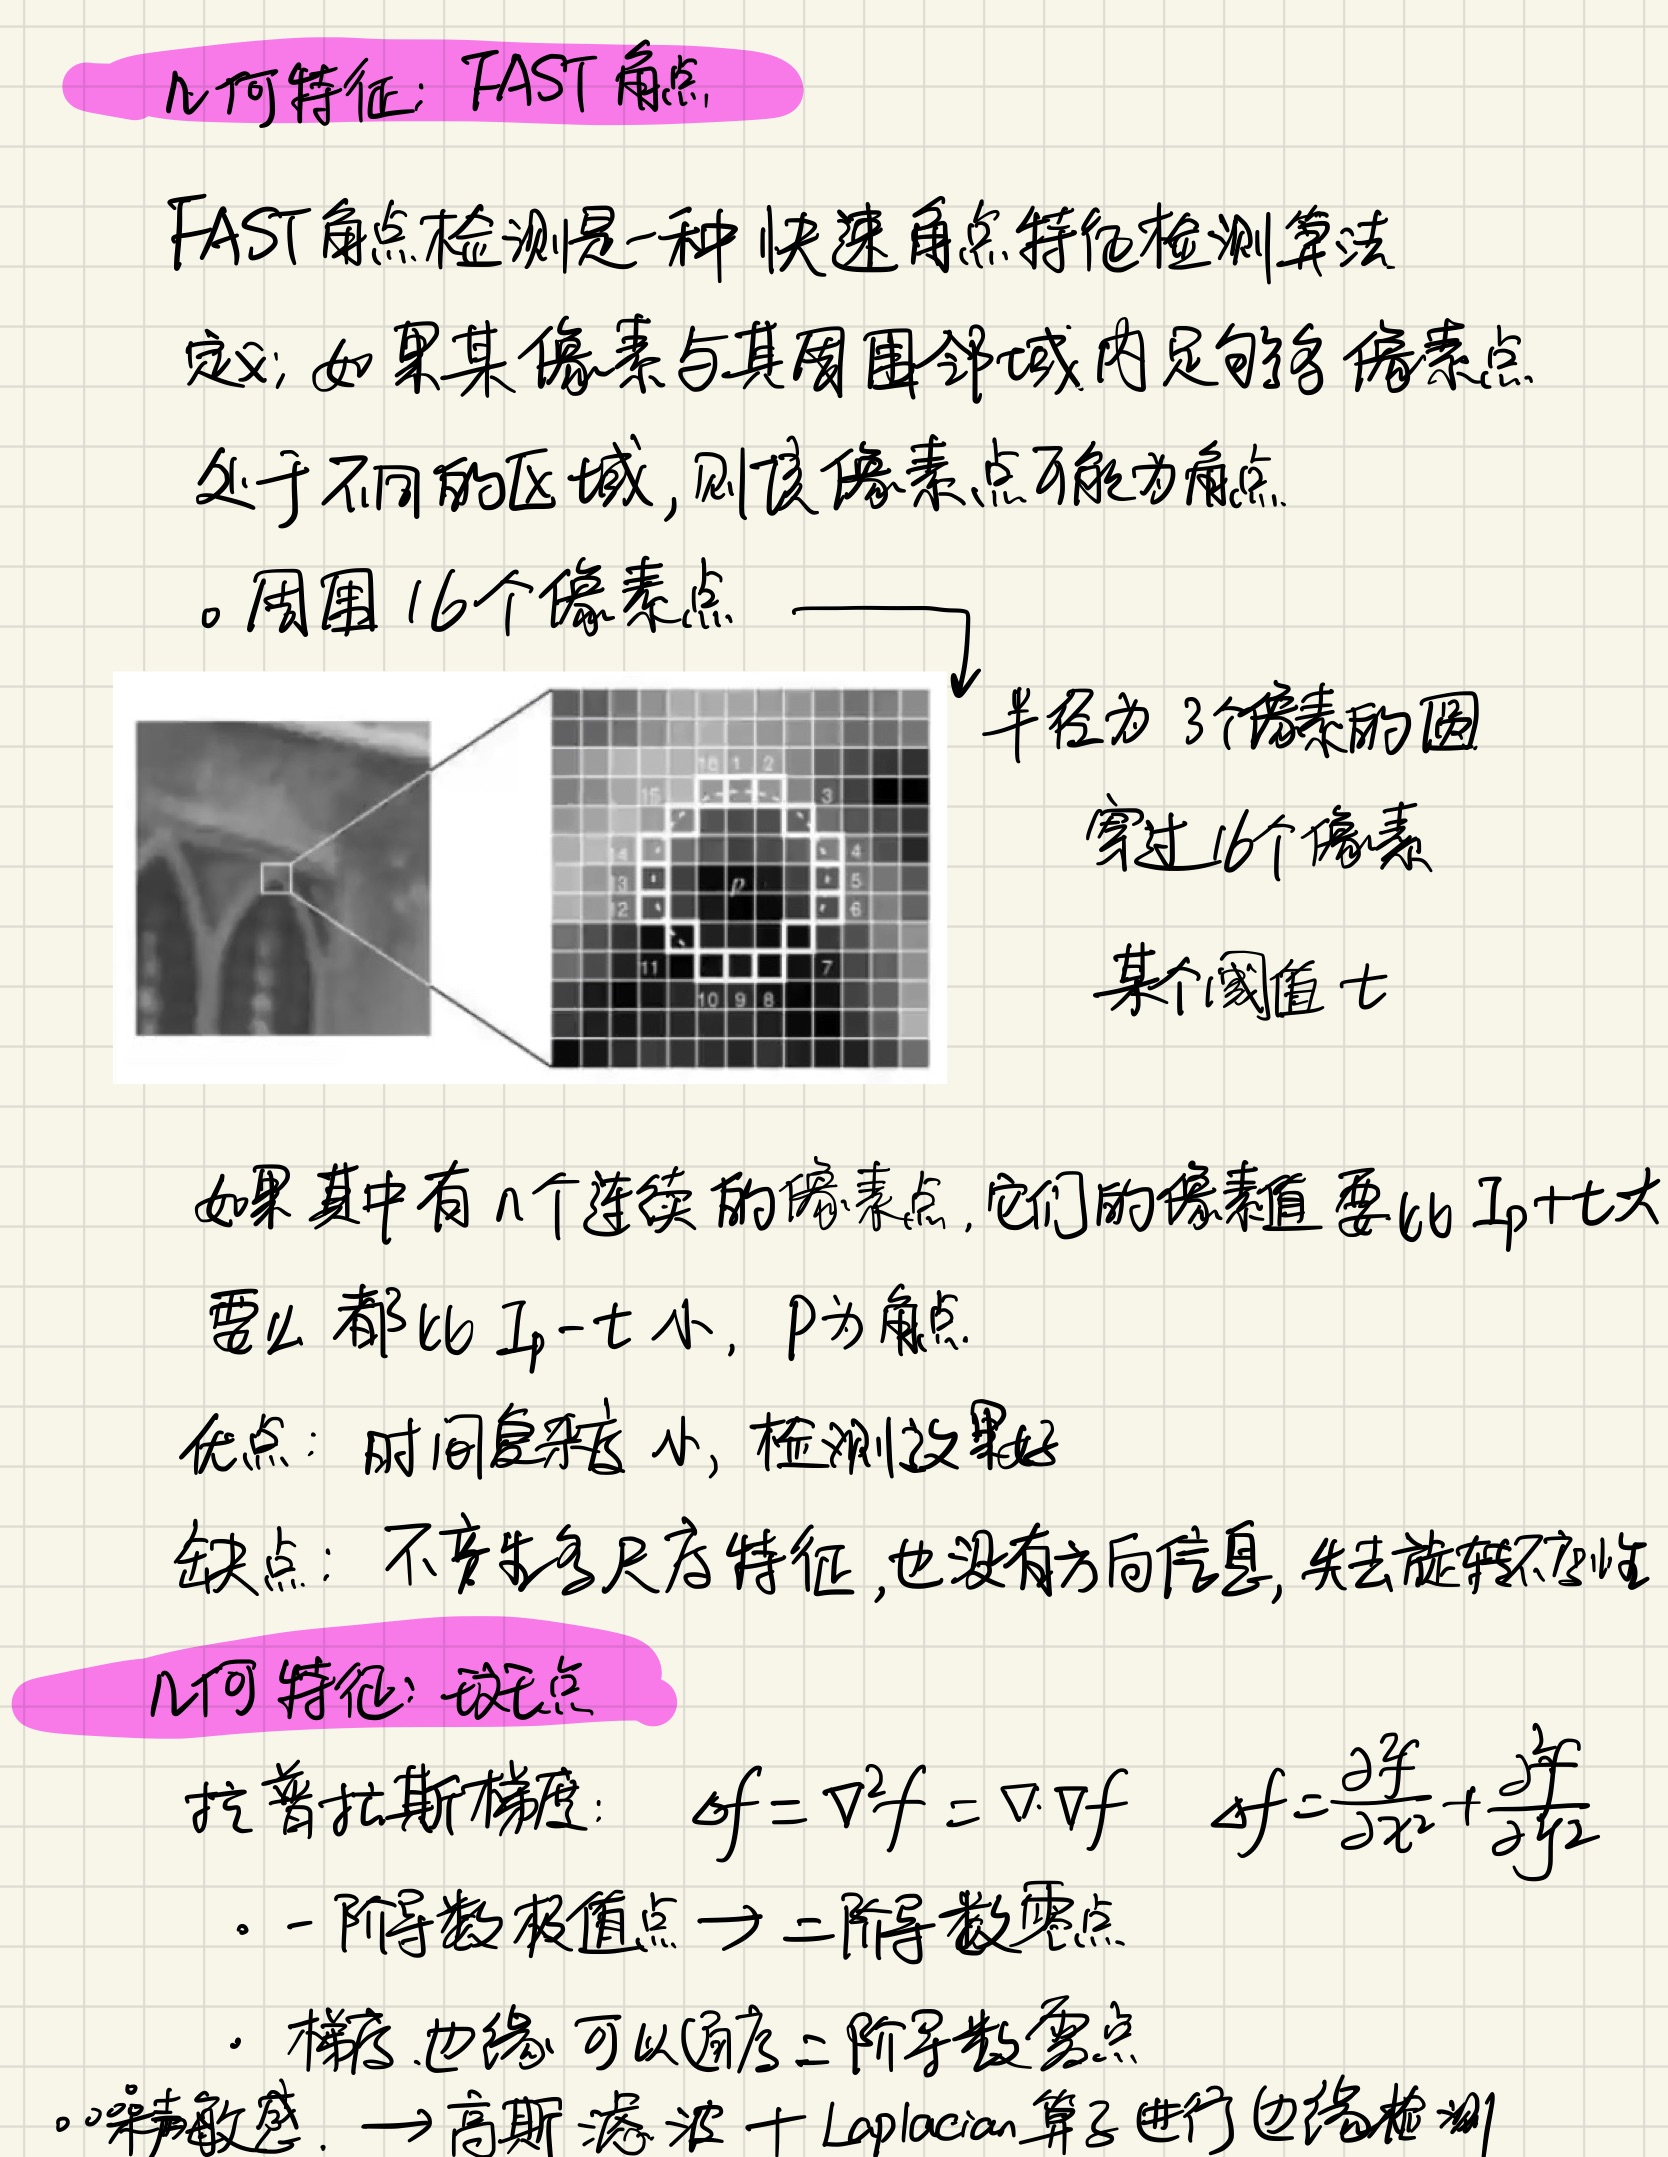 几何特征: FAST角点
FAST角点检测是一种快速角点特征检测算法
定义: 如果某像素与其周围邻域内足够多像素点
处于不同的区域,则该像素点可能为角点.
。周围16个像素点
半径为3个像素的圆
穿过16个像素
某个阈值t
16 1 2
15 3
14 4
13 p 5
12 6
11 7
10 9 8
如果其中有n个连续的像素点,它们的像素值要比 Ip+t大
要么都比 Ip-t 小, P为角点.
优点: 时间复杂度小, 检测效果好
缺点: 不产生多尺度特征,也没有方向信息,失去旋转不变性
几何特征: 斑点
拉普拉斯梯度: Δf = ∇²f = ∇·∇f Δf = ∂²f/∂x² + ∂²f/∂y²
· 一阶导数极值点 → 二阶导数零点
· 梯度边缘可以通过二阶导数零点
噪声敏感. → 高斯滤波 + Laplacian算子进行边缘检测